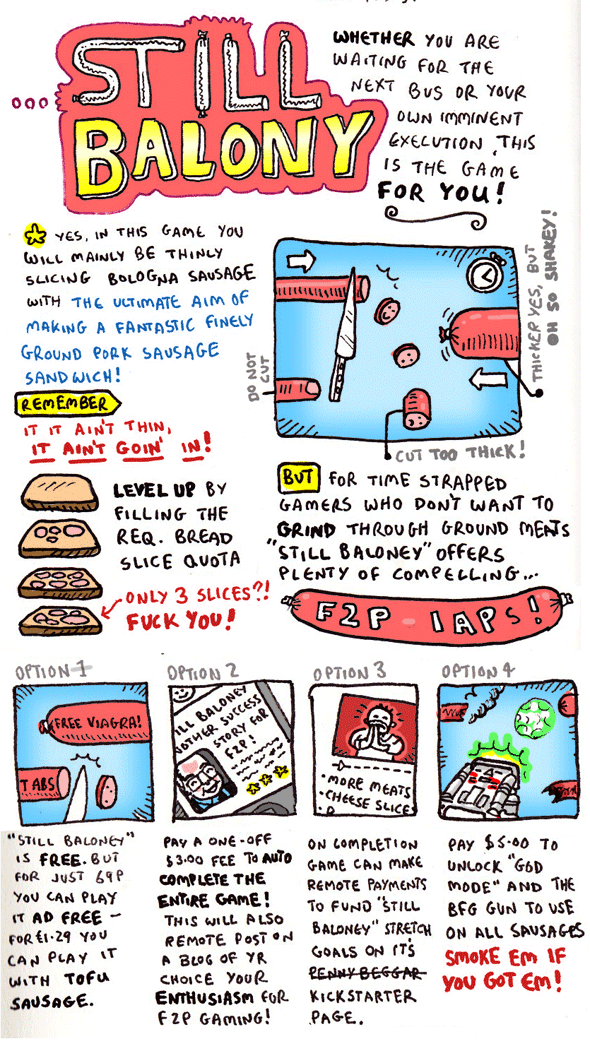 STILL
BALONY
WHETHER YOU ARE
WAITING FOR THE
NEXT BUS OR YOUR
OWN IMMINENT
EXECUTION, THIS
IS THE GAME
FOR YOU!
YES, IN THIS GAME YOU
WILL MAINLY BE THINLY
SLICING BOLOGNA SAUSAGE
WITH THE ULTIMATE AIM OF
MAKING A FANTASTIC FINELY
GROUND PORK SAUSAGE
SANDWICH!
REMEMBER
IT IT AIN'T THIN,
IT AIN'T GOIN' IN!
DO NOT
CUT
THICKER YES, BUT
OH SO SHAKEY!
CUT TOO THICK!
LEVEL UP BY
FILLING THE
REQ. BREAD
SLICE QUOTA
ONLY 3 SLICES?!
FUCK YOU!
BUT FOR TIME STRAPPED
GAMERS WHO DON'T WANT TO
GRIND THROUGH GROUND MEATS
"STILL BALONEY" OFFERS
PLENTY OF COMPELLING...
F2P IAPS!
OPTION 1
FREE VIAGRA!
TABS
"STILL BALONEY"
IS FREE. BUT
FOR JUST 69P
YOU CAN PLAY
IT AD FREE -
FOR £1.29 YOU
CAN PLAY IT
WITH TOFU
SAUSAGE.
OPTION 2
ILL BALONEY
NOTHER SUCCESS
STORY FOR
F2P!
PAY A ONE-OFF
$3.00 FEE TO AUTO
COMPLETE THE
ENTIRE GAME!
THIS WILL ALSO
REMOTE POST ON
A BLOG OF YR
CHOICE YOUR
ENTHUSIASM FOR
F2P GAMING!
OPTION 3
• MORE MEATS
• CHEESE SLICE
ON COMPLETION
GAME CAN MAKE
REMOTE PAYMENTS
TO FUND "STILL
BALONEY" STRETCH
GOALS ON IT'S
PENNY BEGGAR
KICKSTARTER
PAGE.
OPTION 4
PAY $5.00 TO
UNLOCK "GOD
MODE" AND THE
BFG GUN TO USE
ON ALL SAUSAGES
SMOKE EM IF
YOU GOT EM!